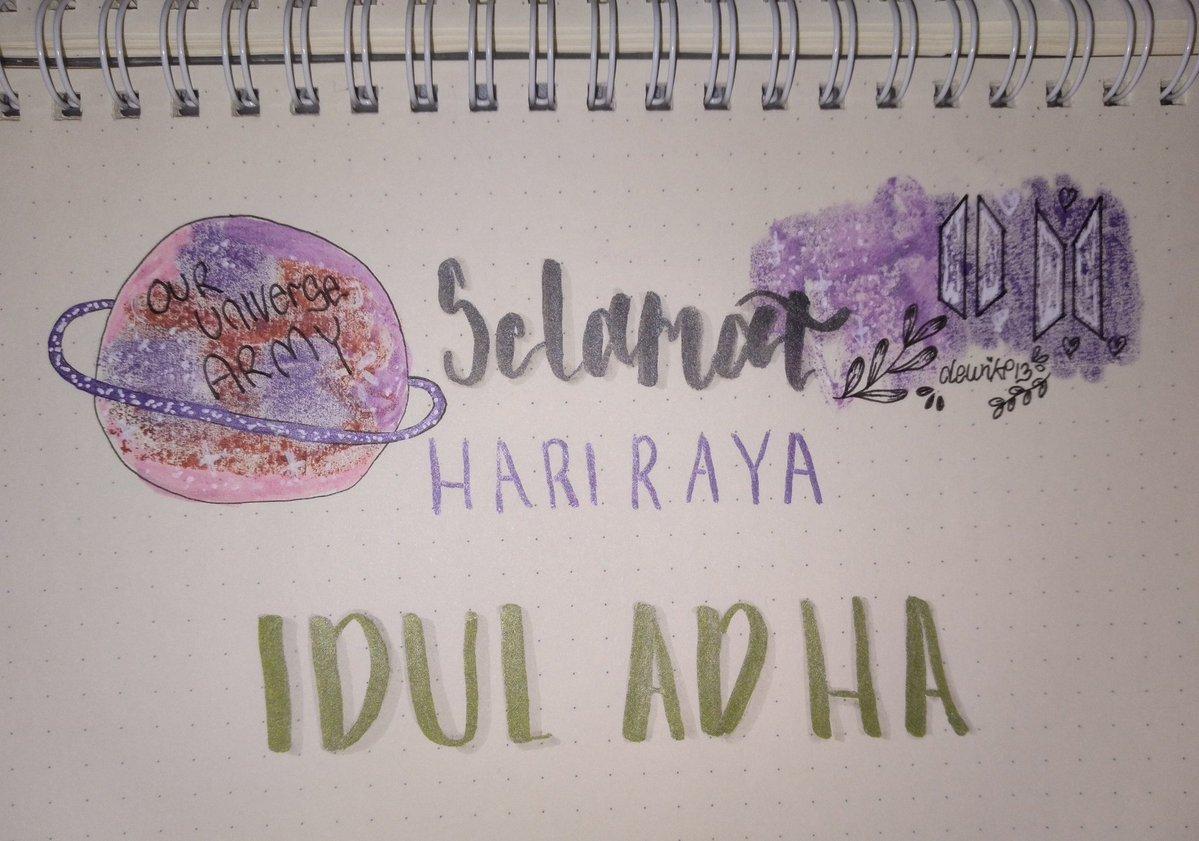 OUR
UNIVERSE
ARMY
Selamat
dewikP13
HARI RAYA
IDUL ADHA